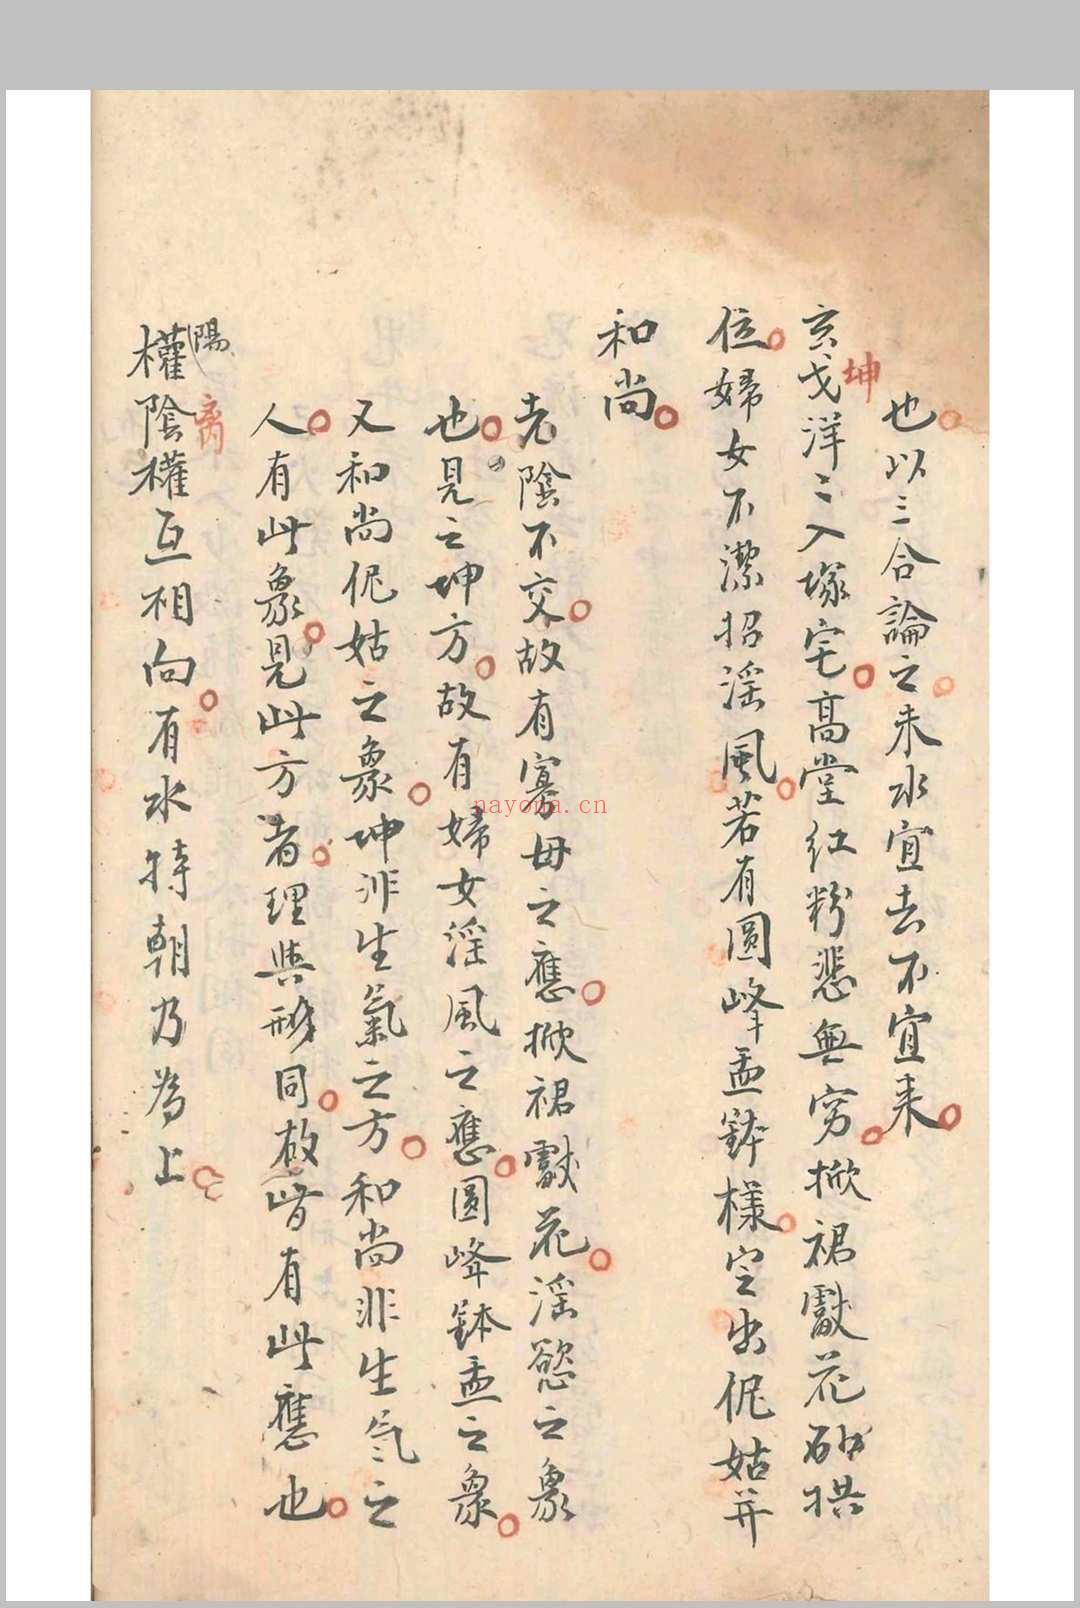 也以三合論之未水宜去不宜来
坤
玄戈洋〻入塚宅高堂紅粉悲無窮掀裙獻花砂拱
位婦女不潔招淫風若有圓峰盂鉢樣定出伲姑并
和尚
老陰不交故有寡毋之應掀裙獻花淫慾之象
也見之坤方故有婦女淫風之應圓峰鉢盂之象
又和尚伲姑之象坤非生氣之方和尚非生气之
人有此象見此方者理與形同故皆有此應也
離
陽
權陰權互相向有水特朝乃為上
nayona.cn